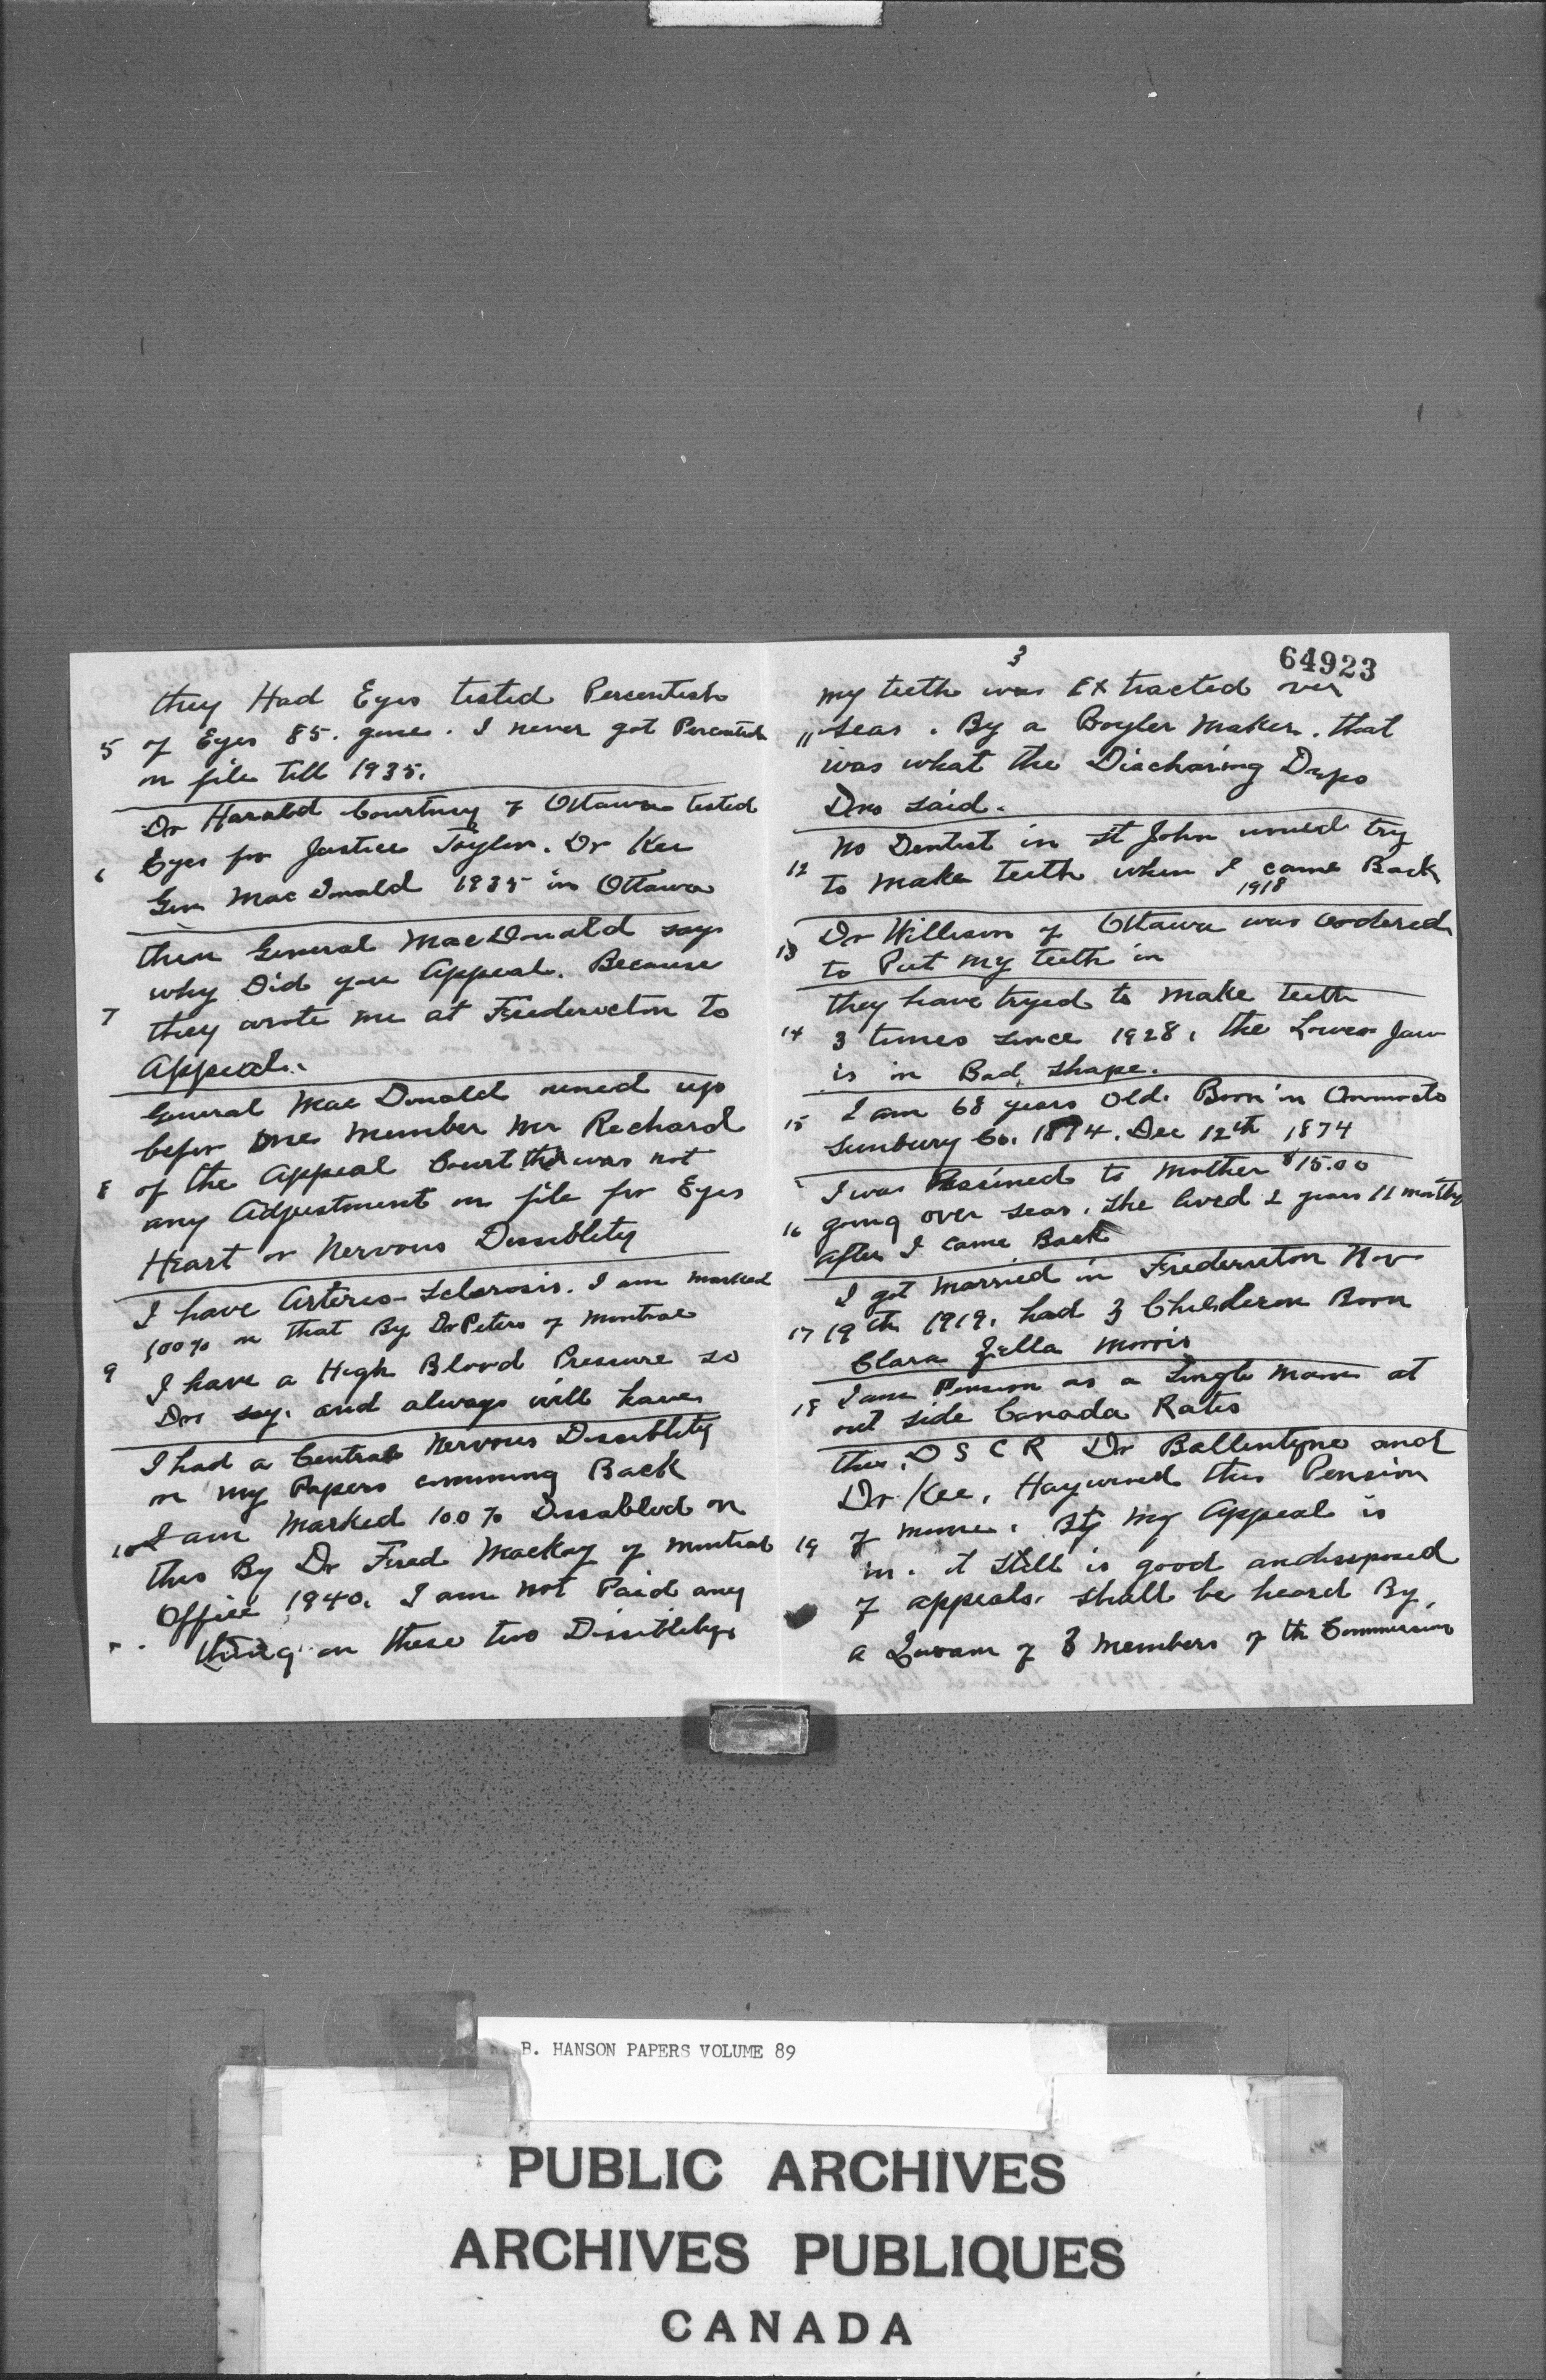 they Had Eyes tested Percentish
5 of Eyes 85. gone. I never got Percentish
on file till 1935.
Dr Harald Courtney of Ottawa tested
6 Eyes for Justice Taylor. Dr Kee
Gen MacDonald 1935 in Ottawa
then General MacDonald says
why Did you Appeal. Because
7 they wrote me at Fredericton to
Appeal.
General MacDonald runed up
befor one member Mr Richard
8 of the Appeal Court ther was not
any Adjustment on file for Eyes
Heart or Nervous Dissiblety
I have Arterio-Sclerosis. I am marked
100% on that By Dr Peters of Montreal
9 I have a High Blood Pressure so
Drs say. and always will have
I had a Central Nervous Dissiblety
on my Papers comming Back
10 I am Marked 100% Dissabled on
this By Dr Fred Mackay of Montreal
Office 1940. I am not Paid any
thing on these two Dissibletys
3
64923
my teeth was Extracted over
11 seas. By a Boyler Maker. that
was what the Discharing Depo
Drs said.
No Dentist in St John would try
12 to make teeth when I came Back
1918
13 Dr Willison of Ottawa was oodered
to Put my teeth in
they have tryed to make teeth
14 3 times since 1928, the Lower Jaw
is in Bad shape.
15 I am 68 years Old. Born in Oromocto
Sunbury Co. 1874. Dec 12th 1874
I was Assined to Mother $15.00
16 going over seas. she lived 2 years 11 months
after I came Back
I got Married in Fredericton Nov
17 19th 1919. had 3 Childeren Born
Clara Zella Morris
18 I am Pension as a Single Man at
out side Canada Rates
this. D S C R Dr Ballentyne and
Dr Kee, Haywired this Pension
19 of mine. My Appeal is
in. it still is good
of appeals. shall be heard By
a Quoram of 3 Members of th Commission
B. HANSON PAPERS VOLUME 89
PUBLIC ARCHIVES
ARCHIVES PUBLIQUES
CANADA